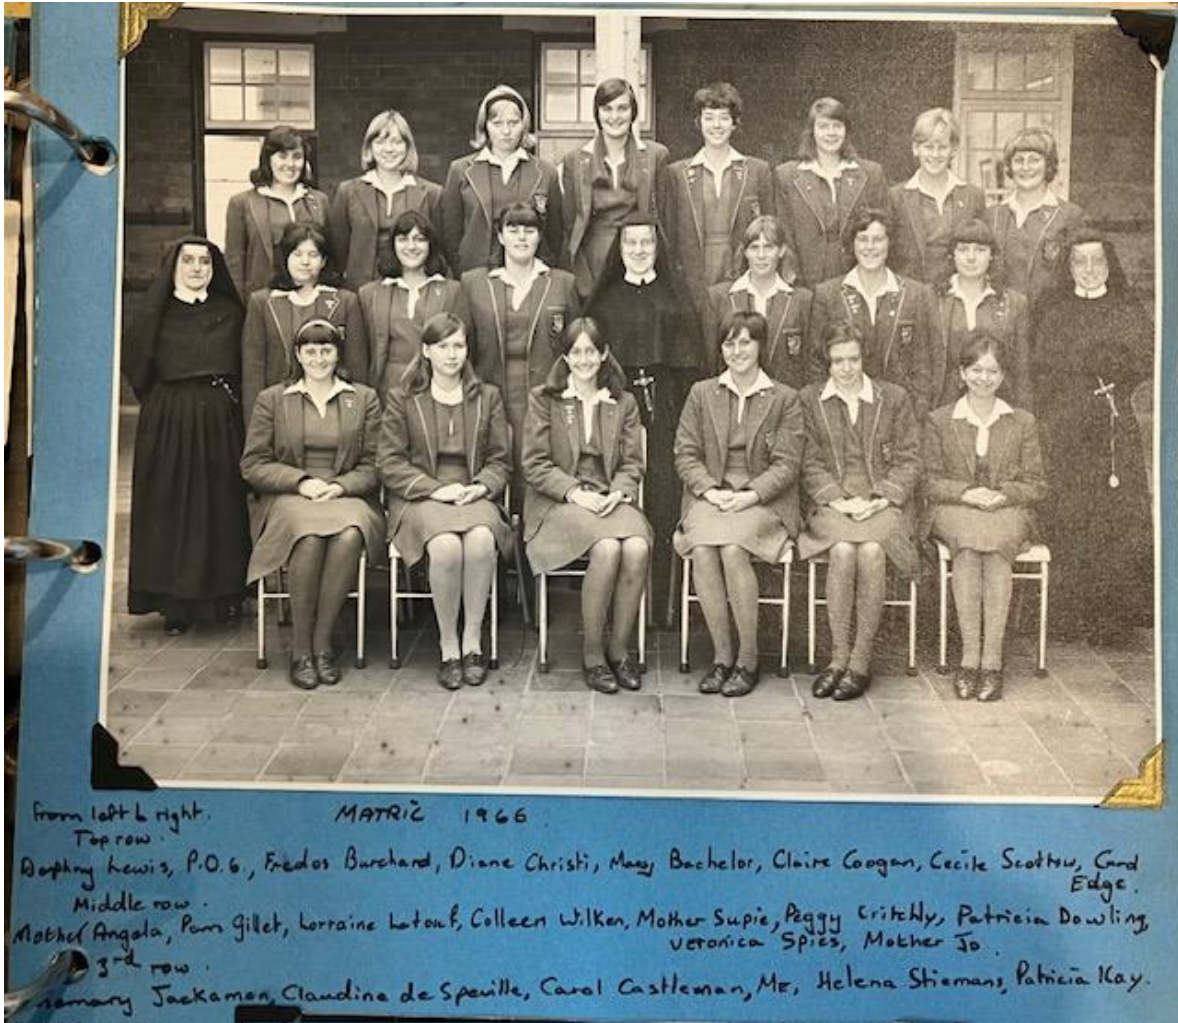 From left to right. MATRIC 1966.
Top row.
Daphny Lewis, P.O.G., Fredos Burchard, Diane Christi, Mary Bachelor, Claire Coogan, Cecile Scottow, Carol
Edge.
Middle row.
Mother Angela, Pam Gillet, Lorraine Latouf, Colleen Wilken, Mother Supie, Peggy Critchly, Patricia Dowling,
Veronica Spies, Mother Jo.
3rd row.
Jackamon, Claudine de Speville, Carol Castleman, Me, Helena Stiemans, Patricia Kay.